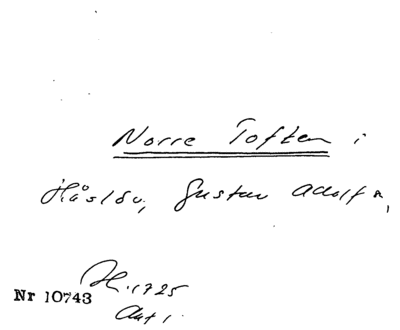 Norre Toften i
Håslöv, Gustav Adolf s,
H. 1725
Nr 10743
Akt 1.